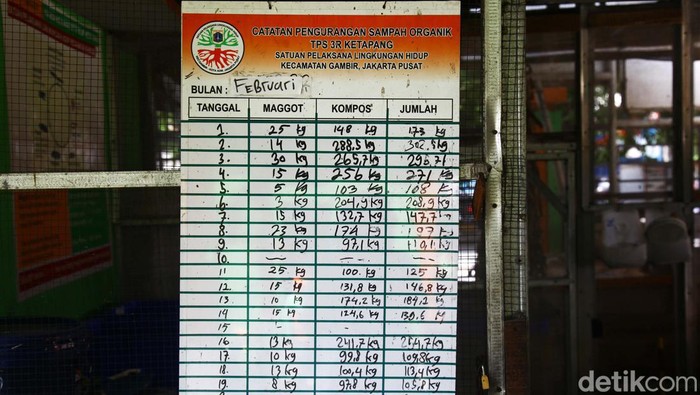 CATATAN PENGURANGAN SAMPAH ORGANIK
TPS 3R KETAPANG
SATUAN PELAKSANA LINGKUNGAN HIDUP
KECAMATAN GAMBIR, JAKARTA PUSAT
BULAN : FEBRUARI
TANGGAL MAGGOT KOMPOS JUMLAH
1. 25 kg 148 kg 173 kg
2. 14 kg 288,5 kg 302,5 kg
3. 30 kg 265,7 kg 295,7
4. 15 kg 256 kg 271 kg
5. 5 kg 103 kg 108 k
6. 3 kg 204,9 kg 208,9 kg
7. 15 kg 132,7 kg 147,7
8. 23 kg 174 kg 197 kg
9. 13 kg 97,1 kg 110,1 kg
10. — — —
11 25 kg 100 kg 125 kg
12 15 kg 131,8 kg 146,8 kg
13 10 kg 174,2 kg 184,2 kg
14 15 kg 124,6 kg 139,6 kg
15 - - -
16 13 kg 241,7 kg 254,7 kg
17. 10 kg 99,8 kg 109,8 kg
18. 13 kg 100,4 kg 113,4 kg
19. 8 kg 97,8 kg 105,8 kg
detikcom